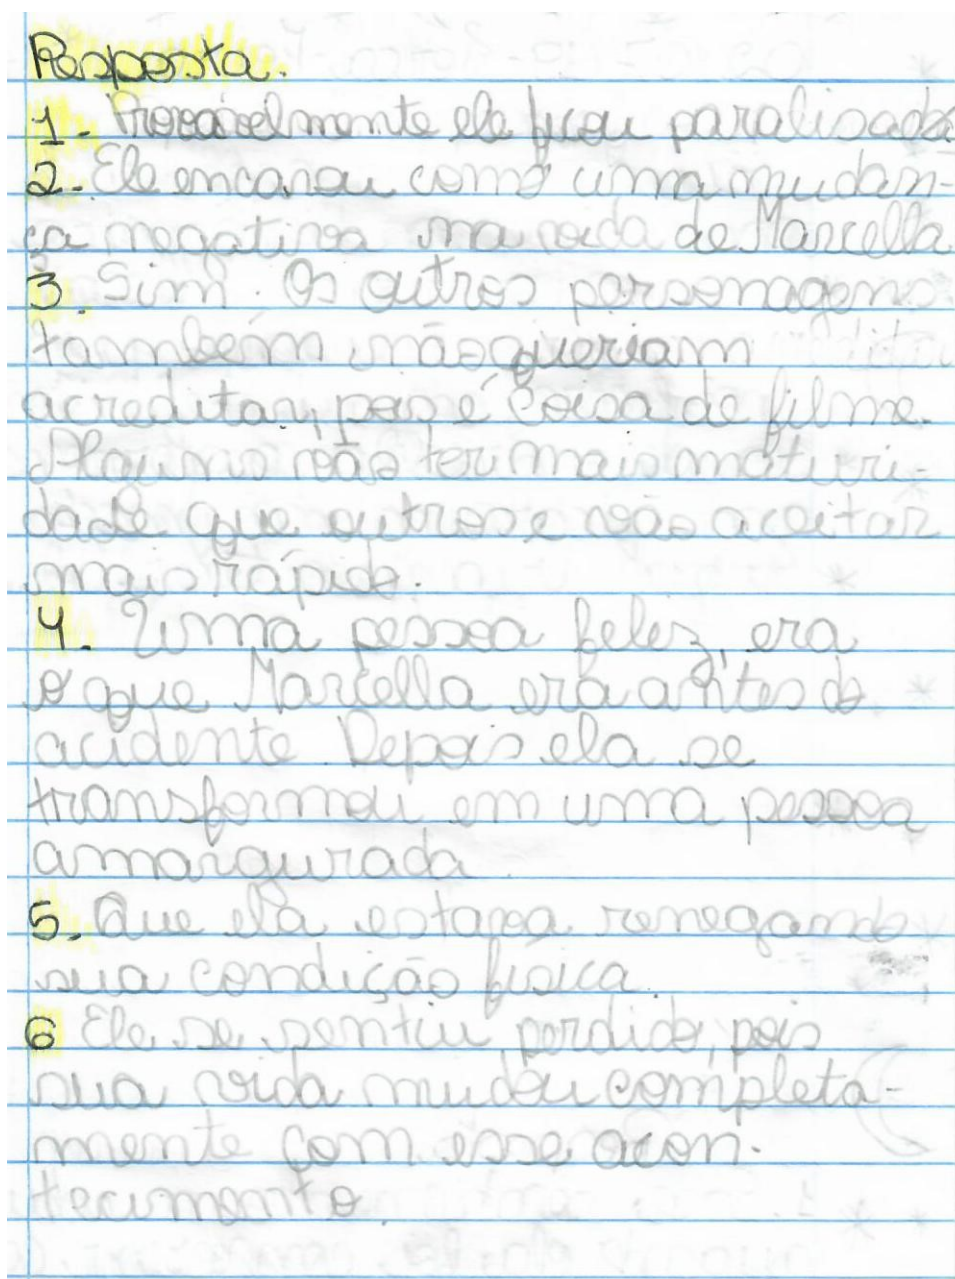 Resposta.
1. Provavelmente ela ficou paralisada
2. Ele encarou como uma mudan-
ça negativa na vida de Marcella
3. Sim. Os outros personagens
também não queriam
acreditar, pois é coisa de filme.
Alguns vão ter mais maturi-
dade que outros e vão aceitar
mais rápido.
4. Uma pessoa feliz, era
o que Marcella era antes do
acidente. Depois ela se
transformou em uma pessoa
amargurada.
5. Que ela estava renegando
sua condição física.
6 Ele se sentiu perdido, pois
sua vida mudou completa-
mente com esse acon-
tecimento